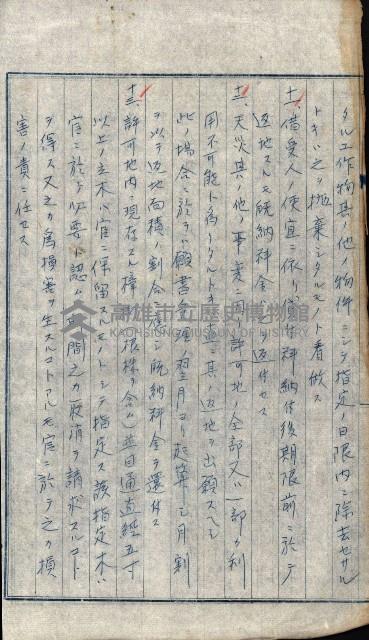 タル工作物其ノ他ノ物件ニシテ指定ノ日限内ニ除去セサル
トキハ之ヲ抛棄シタルモノト看做ス
十一、借受人ノ便宜ニ依リ貸付料納付後期限前ニ於テ
返地スルモ既納料金ヲ返付セス
十二、天災其ノ他ノ事変ニ因リ許可地ノ全部又ハ一部カ利
用不可能ト為リタルトキハ直ニ其ノ返地ヲ出願スヘシ
此ノ場合ニ於テハ願書受理ノ翌月ヨリ起算シ月割
ヲ以テ返地面積ノ割合ニ応シ既納料金ヲ還付ス
十三、許可地内ニ現存スル樟(根株ヲ含ム)並目通直経五寸
以上ノ立木ハ官ニ保留スルモノトシテ指定ス該指定木ハ
官ニ於テ必要ト認 間之カ取消ヲ請求スルコト
ヲ得ス又之カ為損害ヲ生スルコトアルモ官ニ於テ之カ損
害ノ責ニ任セス
高雄市立歷史博物館
KAOHSIUNG MUSEUM OF HISTORY